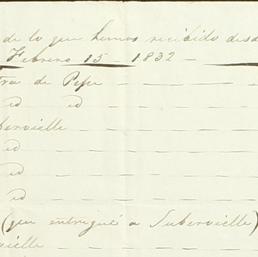 de lo que hemos recibido desd
Febrero 15 - 1832 -
tra de Pepe
id id
bervielle
id
id
id
(que entregué a Subervielle)
vielle